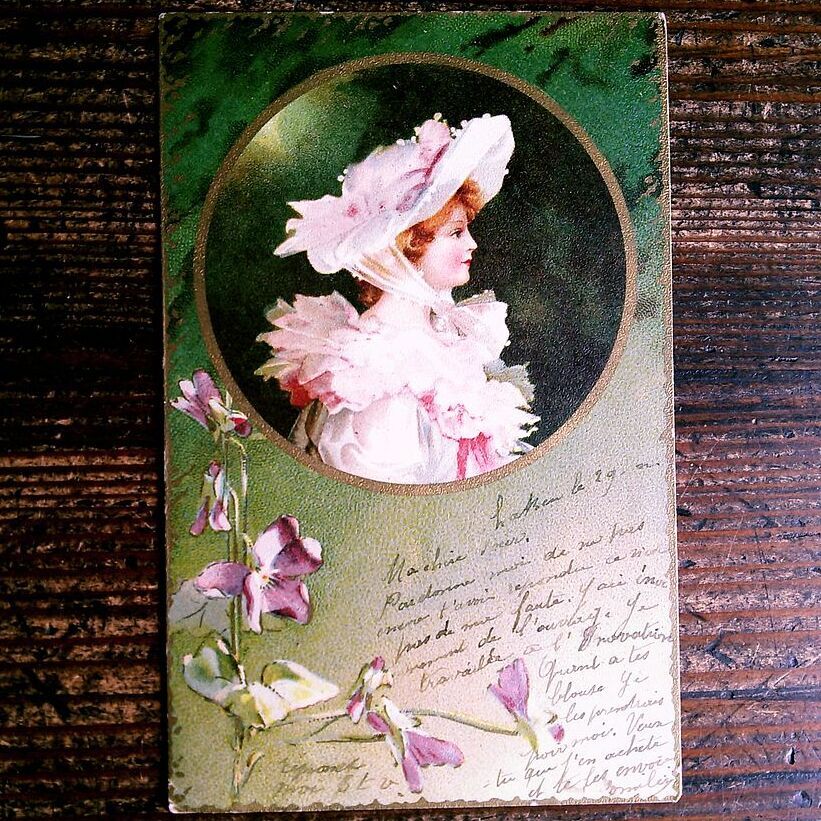 le 29
Ma chère Sœur.
Pardonne moi de ne pas
t'avoir repondu ce n'est
pas de ma faute. J'ai
de l'ouvrage. Je
travaille à l'Innovation
Quant a tes
blouse Je
les prendrais
pour moi. Veux
-tu que j'en achete
et te les envoie